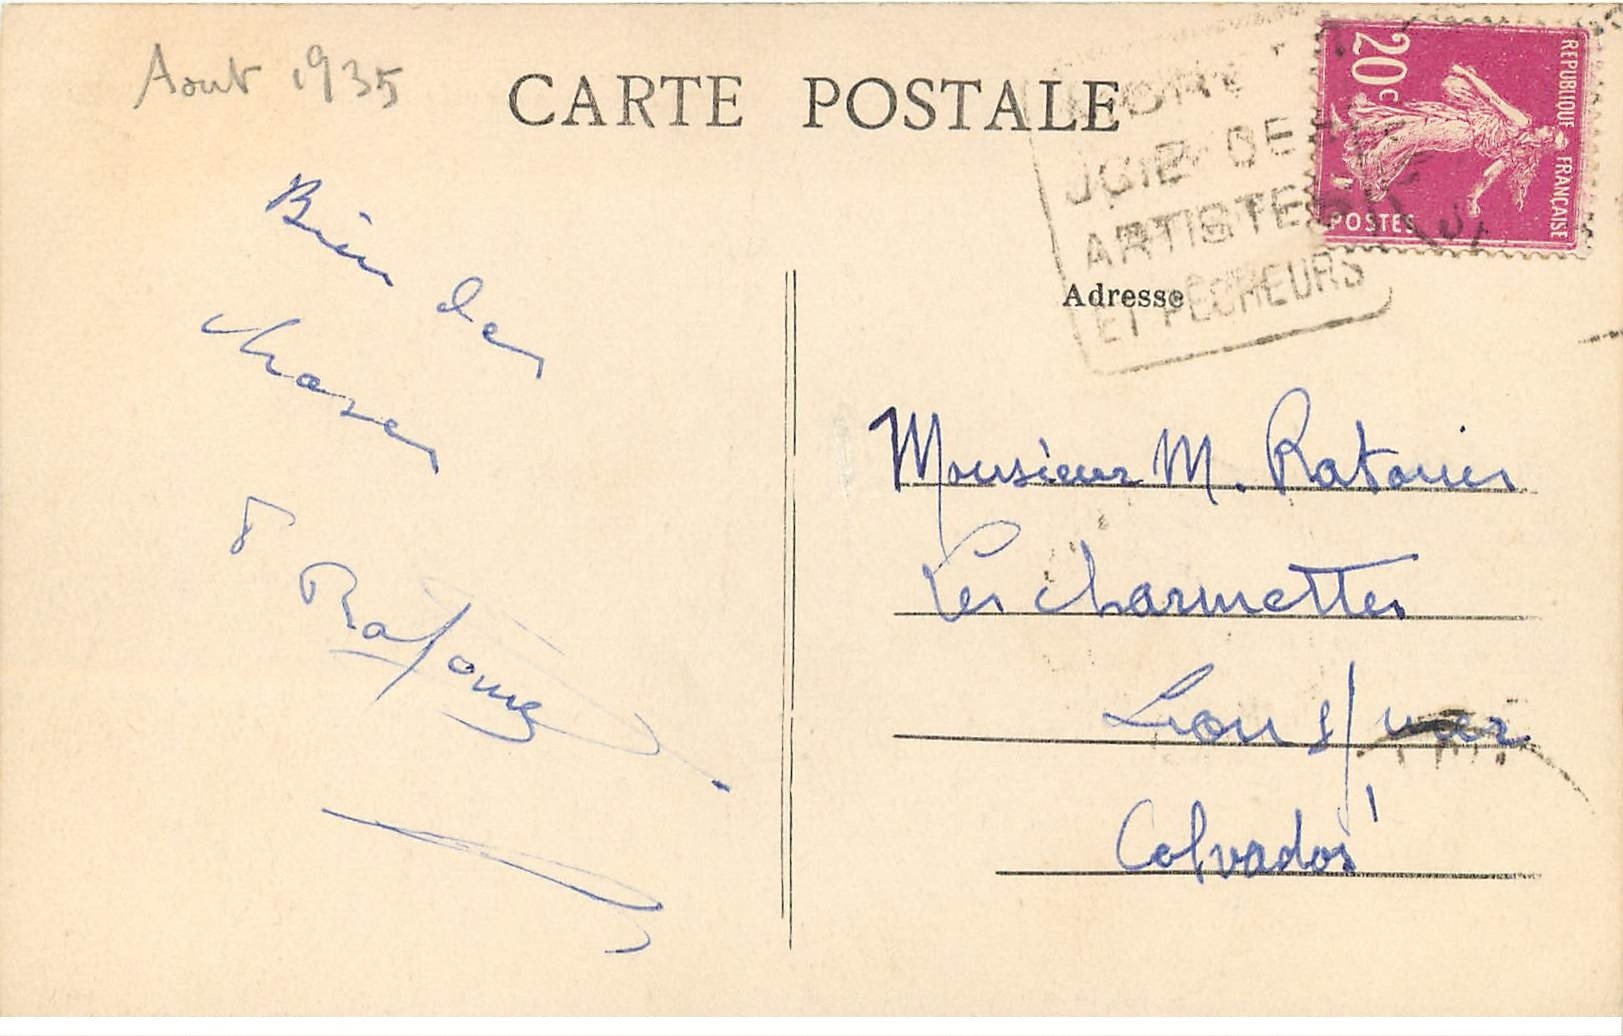 Aout 1935
CARTE POSTALE
20c
REPUBLIQUE FRANÇAISE
POSTES
JOIE DE
ARTISTES
ET PÊCHEURS
Adresse
Bien des
choses
Monsieur M. Ratouis
Les Charmettes
Lion s/ mer
Calvados